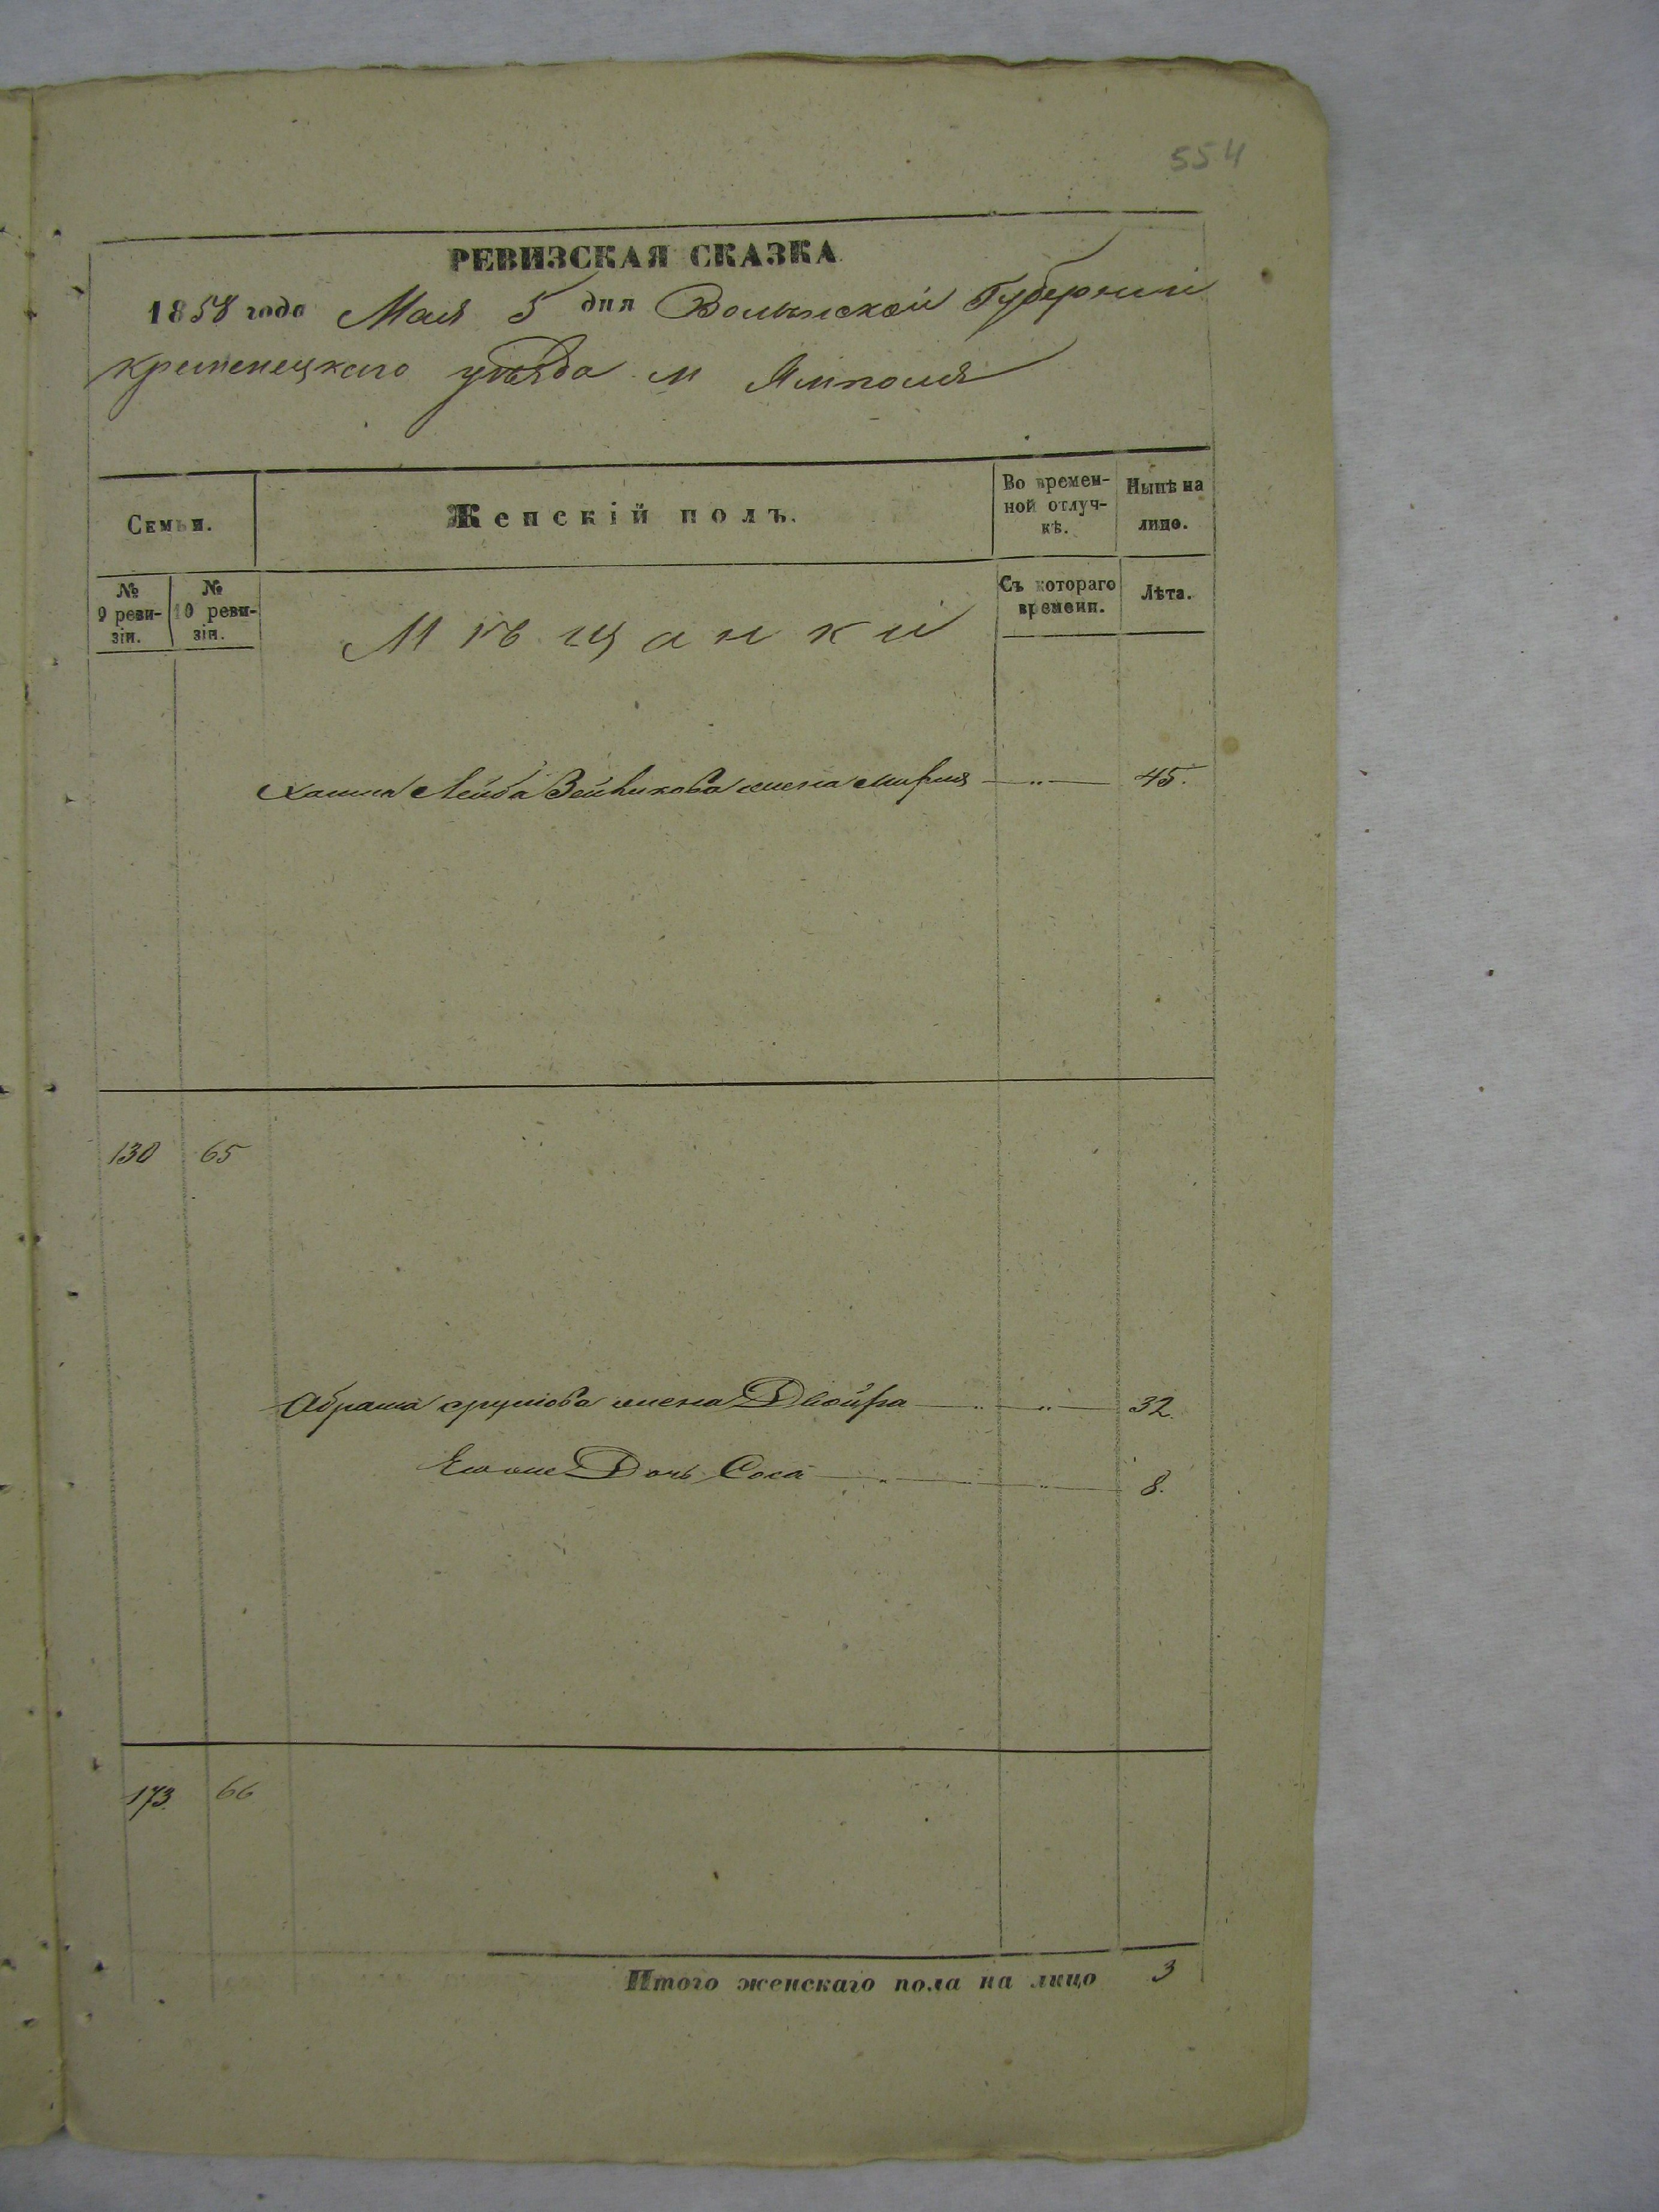 554
РЕВИЗСКАЯ СКАЗКА
1858 года Мая 5 дня Волынской Губерніи
кременецкаго уѣзда м Ямполя
Семьи.
Женскій полъ.
Во времен-
ной отлуч-
кѣ.
Нынѣ на
лицо.
№
9 реви-
зіи.
№
10 реви-
зіи.
Мѣщанки
Съ котораго
времени.
Лѣта.
Лейба жена 45.
130 65
Абрама жена Двойра 32.
Дочь Сося 8.
173 66
Итого женскаго пола на лицо 3